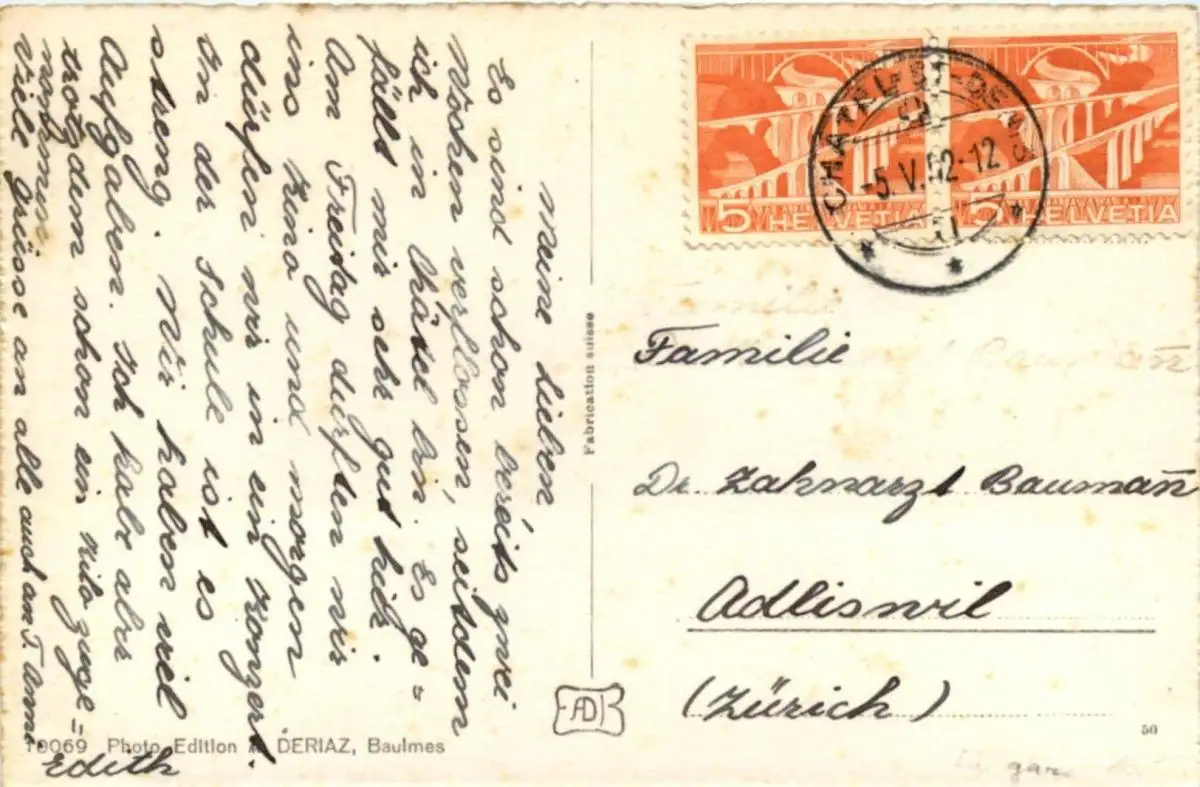 Meine Lieben,
Es sind schon bereits zwei
Wochen verflossen, seitdem
ich in Châtel bin. Es ge=
fällt mir sehr gut hier.
Am Freitag durften wir
ins Kino und morgen
dürfen wir in ein Konzert.
In der Schule ist es
streng. Wir haben viel
Aufgaben. Ich habe aber
trotzdem schon ein Kilo zuge=
nommen.
Viele Grüsse an alle auch an T. Anna
Edith
10069 Photo Edition DERIAZ, Baulmes
Fabrication suisse
5 HELVETIA
5 HELVETIA
CHATEL-ST-DENIS
-5.V.52-12
Familie
Dr. Zahnarzt Baumañ
Adliswil
(Zürich)
AD
50